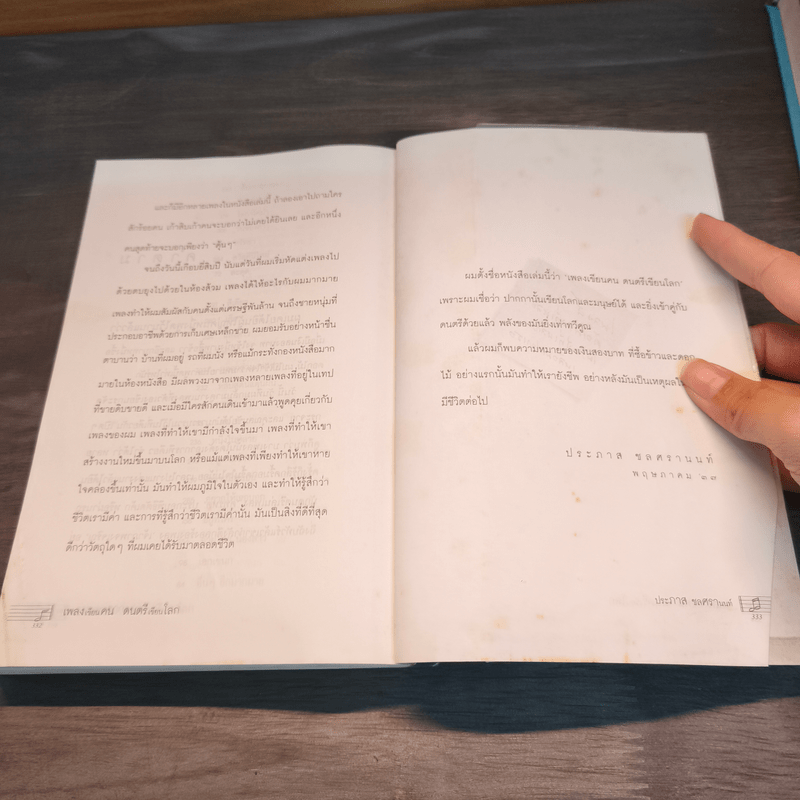 และก็มีอีกหลายเพลงในหนังสือเล่มนี้ ถ้าลองเอาไปถามใคร
สักร้อยคน เก้าสิบเก้าคนจะบอกว่าไม่เคยได้ยินเลย และอีกหนึ่ง
คนสุดท้ายจะบอกเพียงว่า "คุ้นๆ"
จนถึงวันนี้เกือบยี่สิบปี นับแต่วันที่ผมเริ่มหัดแต่งเพลงไป
ด้วยตบยุงไปด้วยในห้องส้วม เพลงได้ให้อะไรกับผมมากมาย
เพลงทำให้ผมสัมผัสกับคนตั้งแต่เศรษฐีพันล้าน จนถึงชายหนุ่มที่
ประกอบอาชีพด้วยการเก็บเศษเหล็กขาย ผมยอมรับอย่างหน้าชื่น
ตาบานว่า บ้านที่ผมอยู่ รถที่ผมนั่ง หรือแม้กระทั่งกองหนังสือมาก
มายในห้องหนังสือ มีผลพวงมาจากเพลงหลายเพลงที่อยู่ในเทป
ที่ขายดิบขายดี และเมื่อมีใครสักคนเดินเข้ามาแล้วพูดคุยเกี่ยวกับ
เพลงของผม เพลงที่ทำให้เขามีกำลังใจขึ้นมา เพลงที่ทำให้เขา
สร้างงานใหม่ขึ้นมาบนโลก หรือแม้แต่เพลงที่เพียงทำให้เขาหาย
ใจคล่องขึ้นเท่านั้น มันทำให้ผมภูมิใจในตัวเอง และทำให้รู้สึกว่า
ชีวิตเรามีค่า และการที่รู้สึกว่าชีวิตเรามีค่านั้น มันเป็นสิ่งที่ดีที่สุด
ดีกว่าวัตถุใดๆ ที่ผมเคยได้รับมาตลอดชีวิต
เพลงเขียนคน ดนตรีเขียนโลก
332
ผมตั้งชื่อหนังสือเล่มนี้ว่า "เพลงเขียนคน ดนตรีเขียนโลก"
เพราะผมเชื่อว่า ปากกานั้นเขียนโลกและมนุษย์ได้ และยิ่งเข้าคู่กับ
ดนตรีด้วยแล้ว พลังของมันยิ่งเท่าทวีคูณ
แล้วผมก็พบความหมายของเงินสองบาท ที่ซื้อข้าวและดอก
ไม้ อย่างแรกนั้นมันทำให้เรายังชีพ อย่างหลังมันเป็นเหตุผล
มีชีวิตต่อไป
ประภาส ชลศรานนท์
พฤษภาคม '๓๗
ประภาส ชลศรานนท์
333